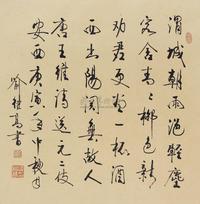 渭城朝雨浥轻尘
客舍青々柳色新
劝君更尽一杯酒
西出阳关无故人
唐王维诗送元二使
安西
书